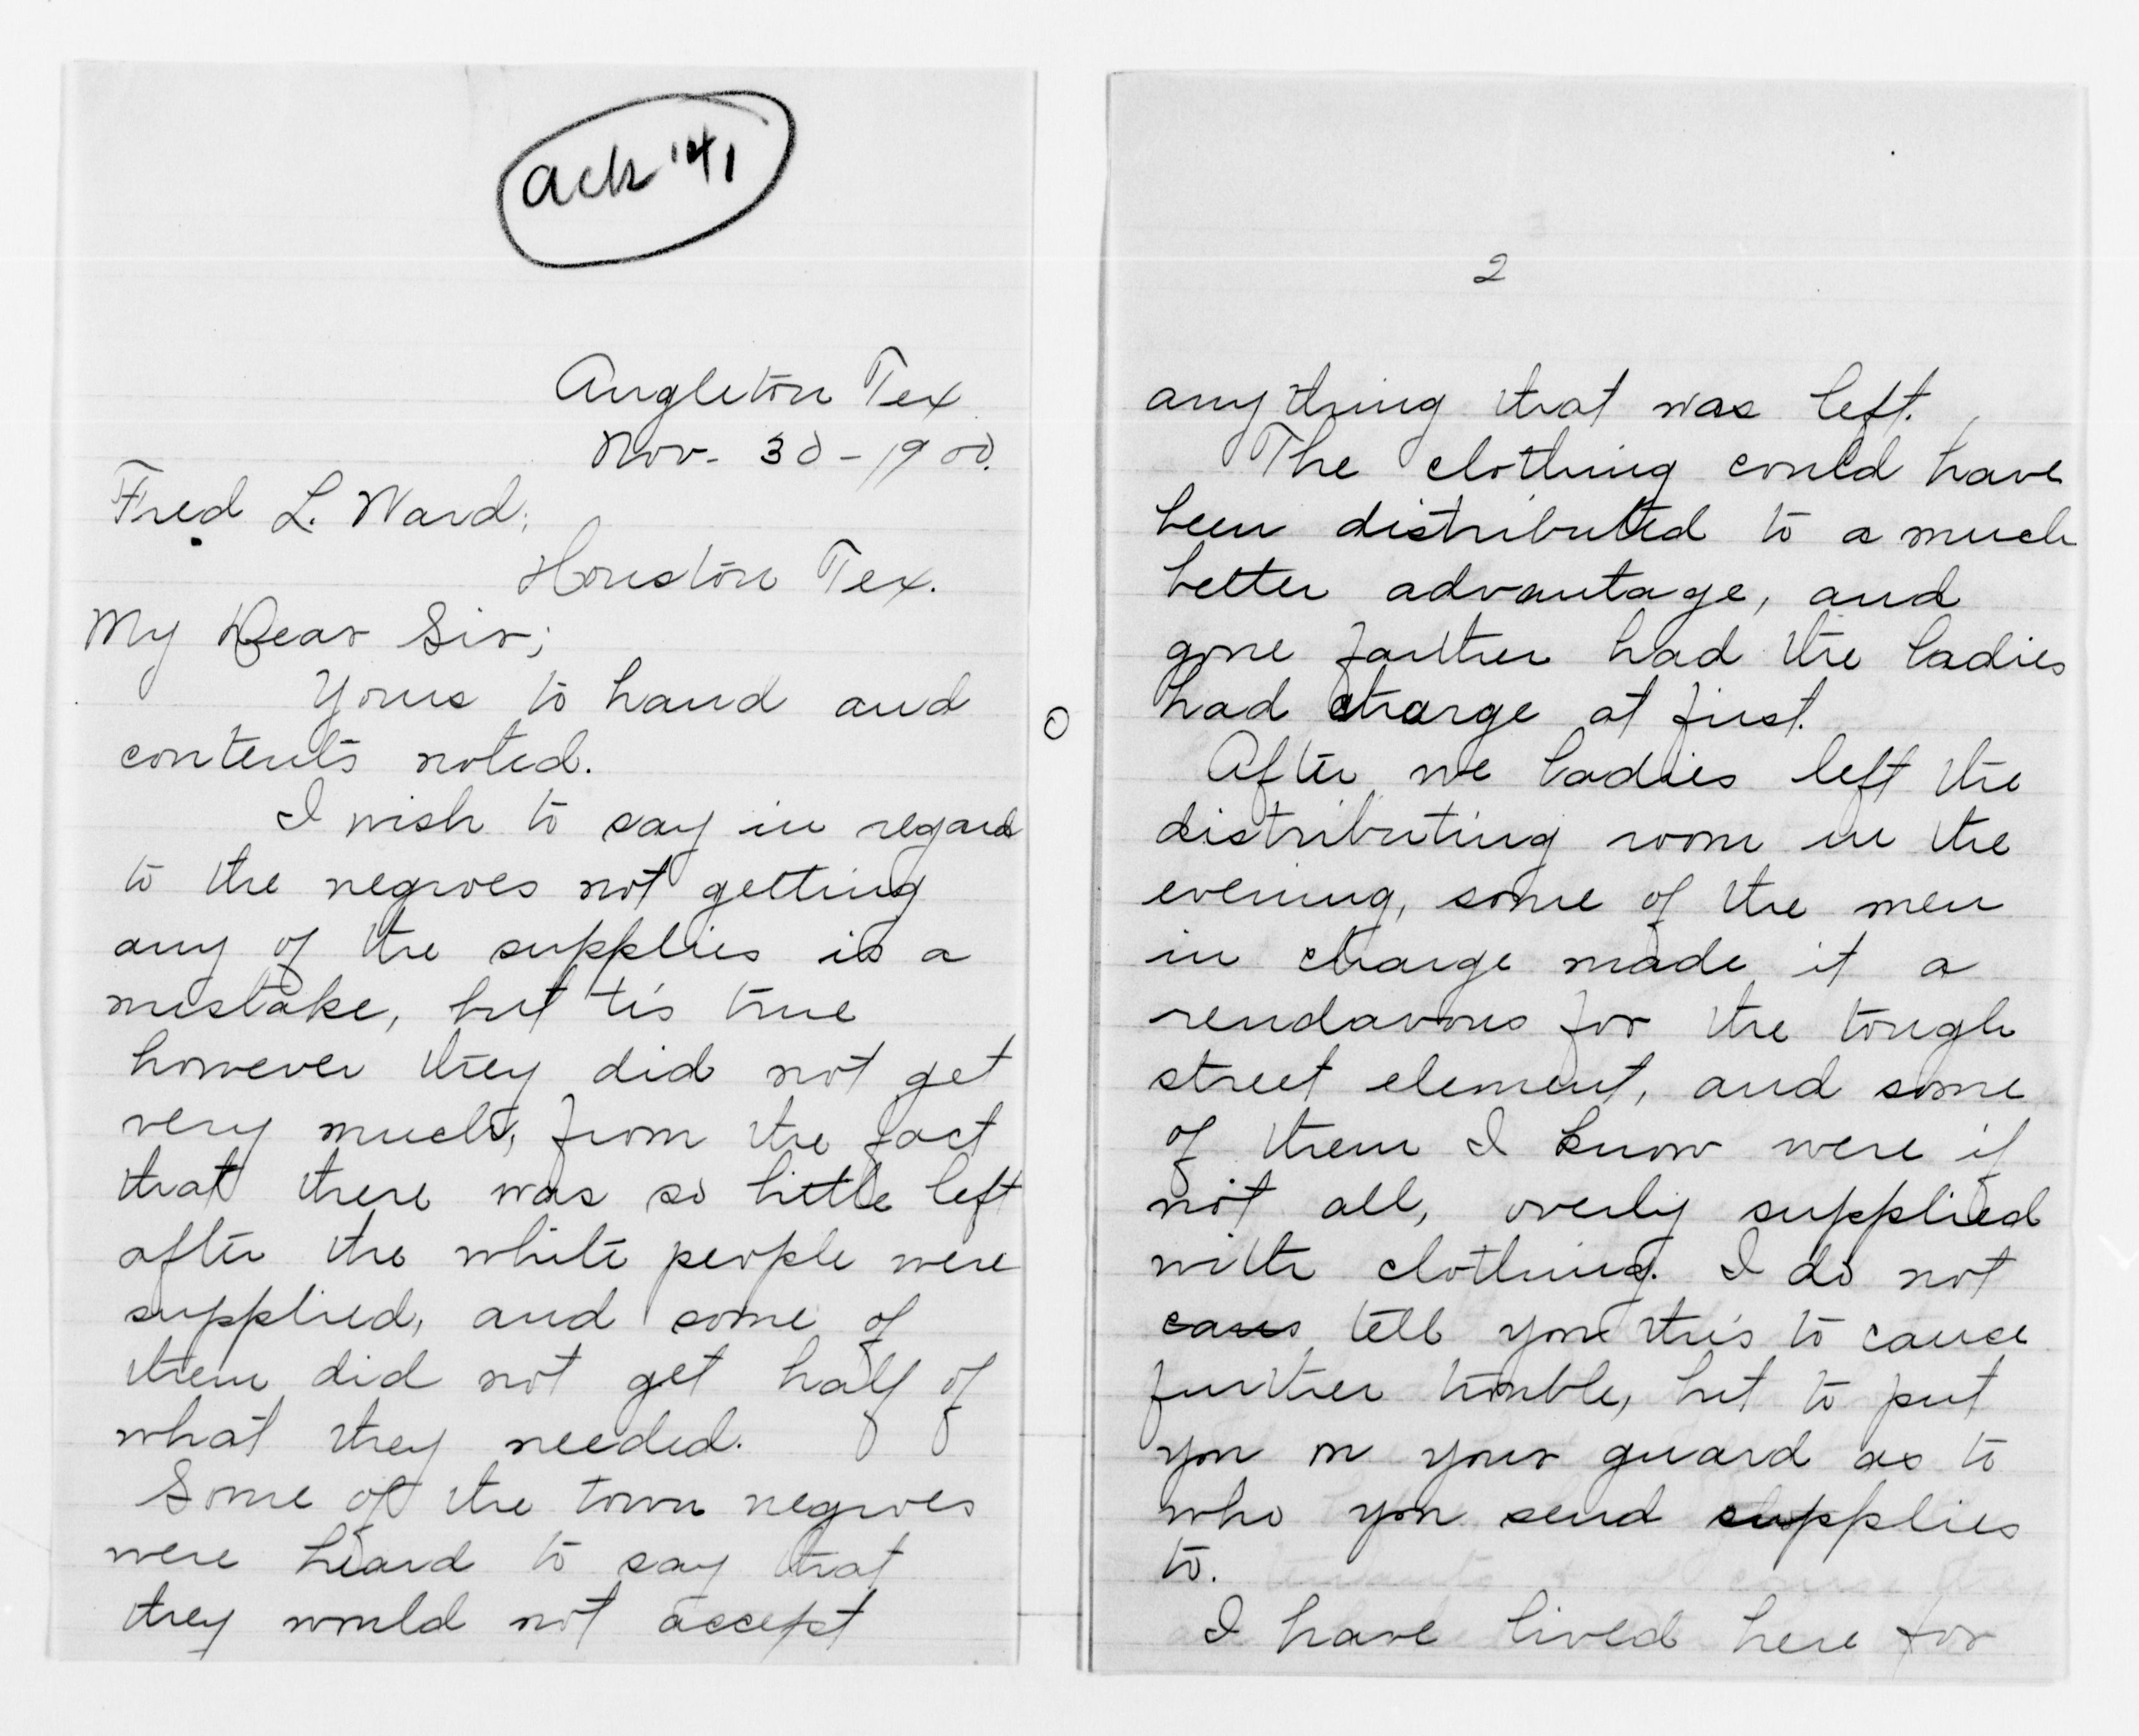 ack '41
Angleton Tex
Nov- 30-1900.
Fred L. Ward;
Houston Tex.
My Dear Sir;
Yours to hand and
contents noted.
I wish to say in regard
to the negroes not getting
any of the supplies is a
mistake, but tis true
however they did not get
very much, from the fact
that there was so little left
after the white people were
supplied, and some of
them did not get half of
what they needed.
Some of the town negroes
were heard to say that
they would not accept
2
any thing that was left.
The clothing could have
been distributed to a much
better advantage, and
gone farther had the ladies
had charge at first.
After we ladies left the
distributing room in the
evening, some of the men
in charge made it a
rendavous for the tough
street element, and some
of them I know were if
not all, overly supplied
with clothing. I do not
caus tell you this to cause
further trouble, but to put
you on your guard as to
who you send supplies
to.
I have lived here for